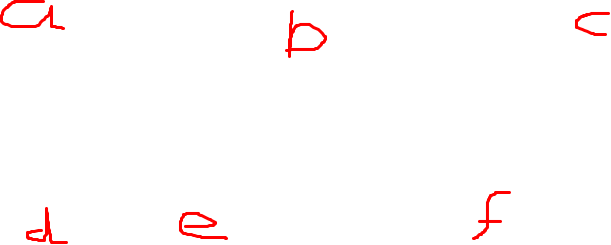 a b c
d e f